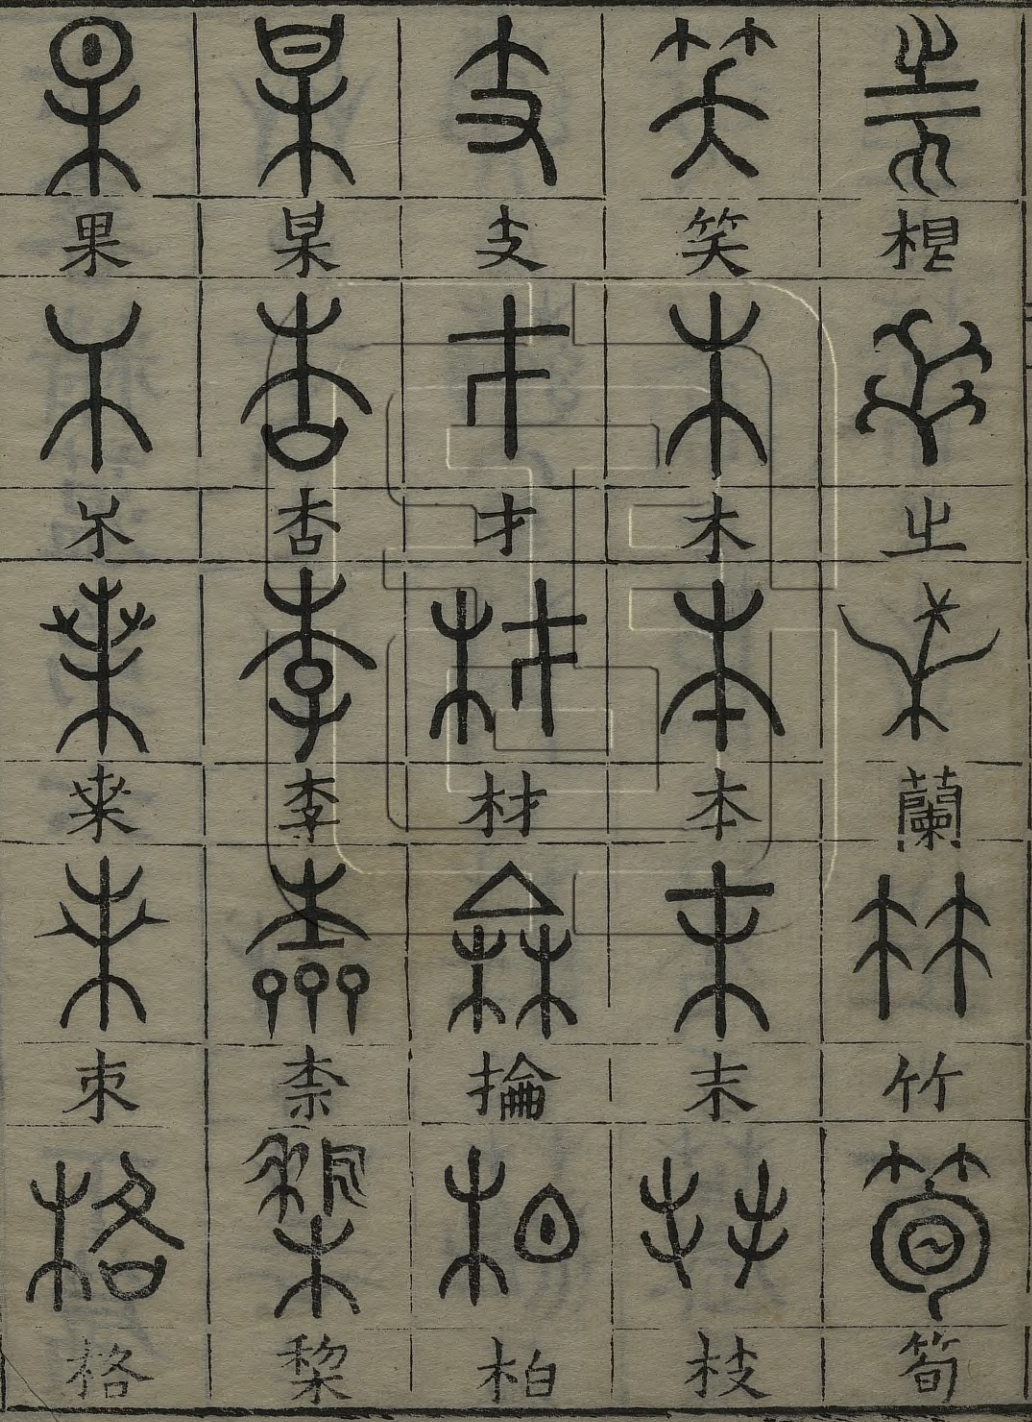 㞢
蘭
竹
筍
笑
木
本
末
枝
支
才
材
掄
柏
某
杏
李
柰
棃
果
朩
桒
朿
格